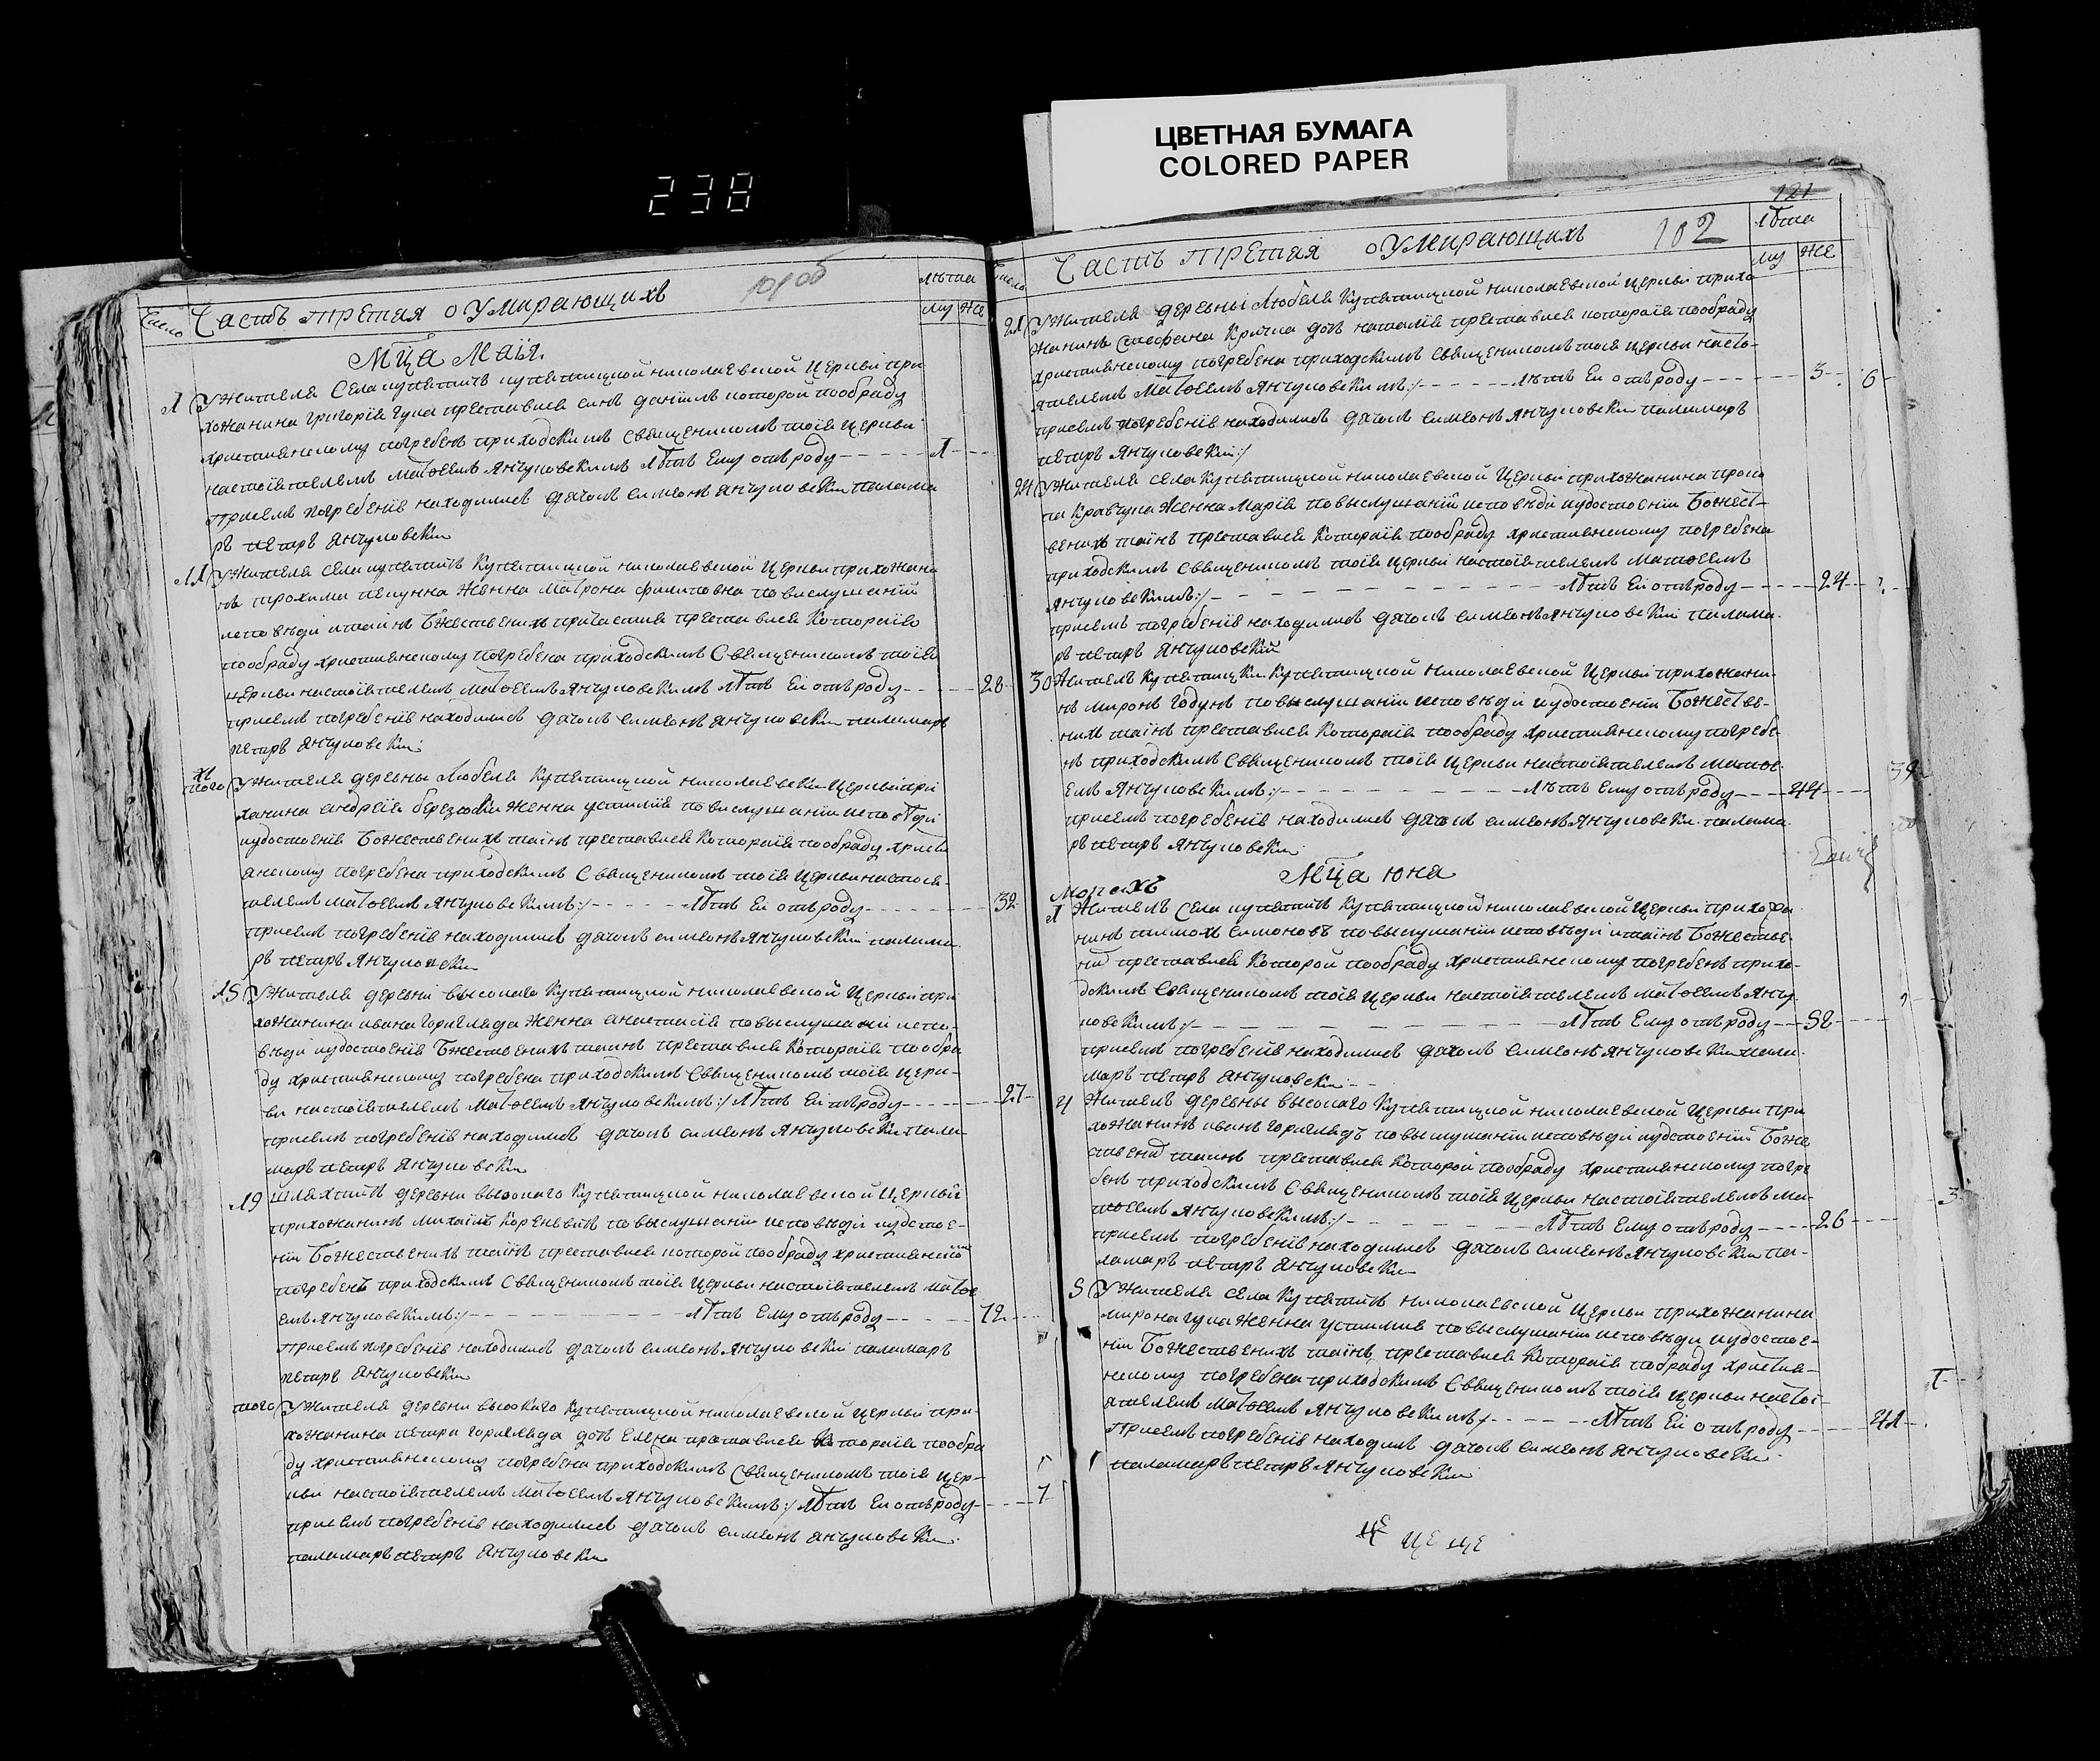 ЦВЕТНАЯ БУМАГА
COLORED PAPER
238
Число
Часть третая о Умирающихъ
101 об
лѣта
му же
Мца Маія.
1 У Жителя Села купетичъ купетицкой николаевской Церкви при
хожанина григорія гука преставися синъ даніилъ которой пообряду
христіянскому погребенъ приходскимъ Священикомъ тоія Церкви
настоятелемъ Матѳеемъ Янчуковскимъ лѣтъ Ему отъ роду 1
Присемъ погребеніѣ находился дячокъ симеонъ янчуковскій палама
ръ петръ янчуковскій
11 У Жителя села купетичъ Купетицкой николаевской Церкви прихожани
нъ трохима Жена Матрона филиповна по вислушаніи
исповѣди и таінъ Бжественихъ причастия преставися Котораія
пообряду християнскому погребена приходскимъ Священикомъ тоія
церкви настоятелемъ Матѳеемъ Янчуковскимъ лѣтъ Еи отъ роду 28
присемъ погребеніѣ находился дячокъ симеонъ янчуковскій паламаръ
петръ янчуковскій
того У Жителя деревны Любеля Купетицкой николаевской Церкви при
хажанина андрѣя Жена устимія по вислушаніи исповѣди
иудостоеніѣ Божественихъ таінъ преставися Котораія пообряду христи
янскому погребена приходскимъ Священикомъ тоія Церкви настоя
телемъ Матѳеемъ Янчуковскимъ:/ Лѣтъ Еи отъ роду 32
присемъ погребеніѣ находился дячокъ симеонъ Янчуковскій палама
ръ петръ Янчуковскій
15 У Жителя деревни высокаго Купетицкой николаевской Церкви при
хожанина ивана горигляда Жена анастасія по выслушаніи испо
вѣди иудостоеніѣ Бжественихъ таинъ преставися Котораія пообря
ду християнскому погребена приходскимъ Священикомъ тоія Церк
ви настоятелемъ Матѳеемъ Янчуковскимъ:/ Лѣтъ Еи отъ роду 27
присемъ погребеніѣ находился дячокъ симеонъ Янчуковскій пала
маръ петръ Янчуковскій
19 шляхтичъ деревни высокаго Купетицкой николаевской Церкви
прихожанинъ михаілъ Кореневичъ по выслушаніи исповѣди иудостое
ніи Божественихъ таінъ преставися которой пообряду християнскому
погребенъ приходскимъ Священикомъ тоія Церкви настоятелемъ Матѳе
емъ Янчуковскимъ:/ Лѣтъ Ему отъ роду 72
присемъ погребеніѣ находился дячокъ симеонъ Янчуковскій паламаръ
петръ Янчуковскій
того У Жителя деревни высокаго Купетицкой николаевской Церкви при
хожанина петра горигляда дочъ Елена преставися Котораія пообря
ду християнскому погребена приходскимъ Священикомъ тоія Цер
кви настоятелемъ Матѳеемъ Янчуковскимъ:/ Лѣтъ Еи отъ роду 7
присемъ погребеніѣ находился дячокъ симеонъ янчуковскій
паламаръ петръ янчуковскій
121
Число
Часть третая о Умирающихъ
102
лѣта
му же
21 У Жителя деревны Любеля Купетицкой николаевской Церкви прихо
жанинъ Стефана дочъ наталія преставися котораія пообряду
християнскому погребена приходскимъ Священикомъ тоія церкви насто
ятелемъ Матѳеемъ Янчуковскимъ:/ Лѣтъ Еи отъ роду 3
присемъ погребеніѣ находился дячокъ симеонъ янчуковскій паламаръ
петръ Янчуковскій:/
24 У Жителя села Купетицкой николаевской Церкви прихожанина проко
па Кравчука Жена Марія по выслушаніи исповѣди иудостоеніи Божест
венихъ таінъ преставися Котораія пообряду християнскому погребена
приходскимъ Священикомъ тоія Церкви настоятелемъ Матѳеемъ
Янчуковскимъ:/ Лѣтъ Еи отъ роду 24
присемъ погребеніѣ находился дячокъ симеонъ Янчуковскій палама
ръ петръ Янчуковскій
30 Житель Купетицкой николаевской Церкви прихожани
нъ миронъ годунъ по выслушаніи исповѣди иудостоеніи Божестве
нихъ таінъ преставися Котораія пообряду християнскому погребе
нъ приходскимъ Священикомъ тоія Церкви настоятелемъ матѳе
емъ Янчуковскимъ:/ Лѣтъ Ему отъ роду 44
присемъ погребеніѣ находился дячокъ симеонъ Янчуковскій палама
ръ петръ Янчуковскій
Мца юня
1 Житель Села купетичъ Купетицкой николаевской Церкви прихожа
нинъ тимохъ симоновъ по выслушаніи исповѣди итаінъ Божестве
ни преставися Которой пообряду християнскому погребенъ прихо
дскимъ Священикомъ тоія Церкви настоятелемъ Матѳеемъ Янчу
ковскимъ:/ Лѣтъ Ему отъ роду 52
присемъ погребеніѣ находился дячокъ симеонъ янчуковскій пала
маръ петръ янчуковскій
4 Житель деревны высокаго Купетицкой николаевской Церкви при
хожанинъ иванъ горигладъ по выслушаніи исповѣди иудостоеніи Боже
ствени таинъ преставися Которой пообряду християнскому погре
бенъ приходскимъ Священикомъ тоія Церкви настоятелемъ ма
тѳеемъ Янчуковскимъ:/ Лѣтъ Ему отъ роду 26
присемъ погребеніѣ находился дячокъ симеонъ янчуковскій па
ламаръ петръ янчуковскій
5 У Жителя села Купетичъ николаевской Церкви прихожанина
мирона гука Жена устимия по выслушаніи исповѣди иудостое
ніи Божественихъ таінъ преставися Котораія побряду христия
нскому погребена приходскимъ Священикомъ тоія Церкви насто
ятелемъ Матѳеемъ Янчуковскимъ Лѣтъ Еи отъ роду 41
Присемъ погребеніѣ находился дячокъ симеонъ янчуковскій
паламаръ петръ Янчуковскій
це це це